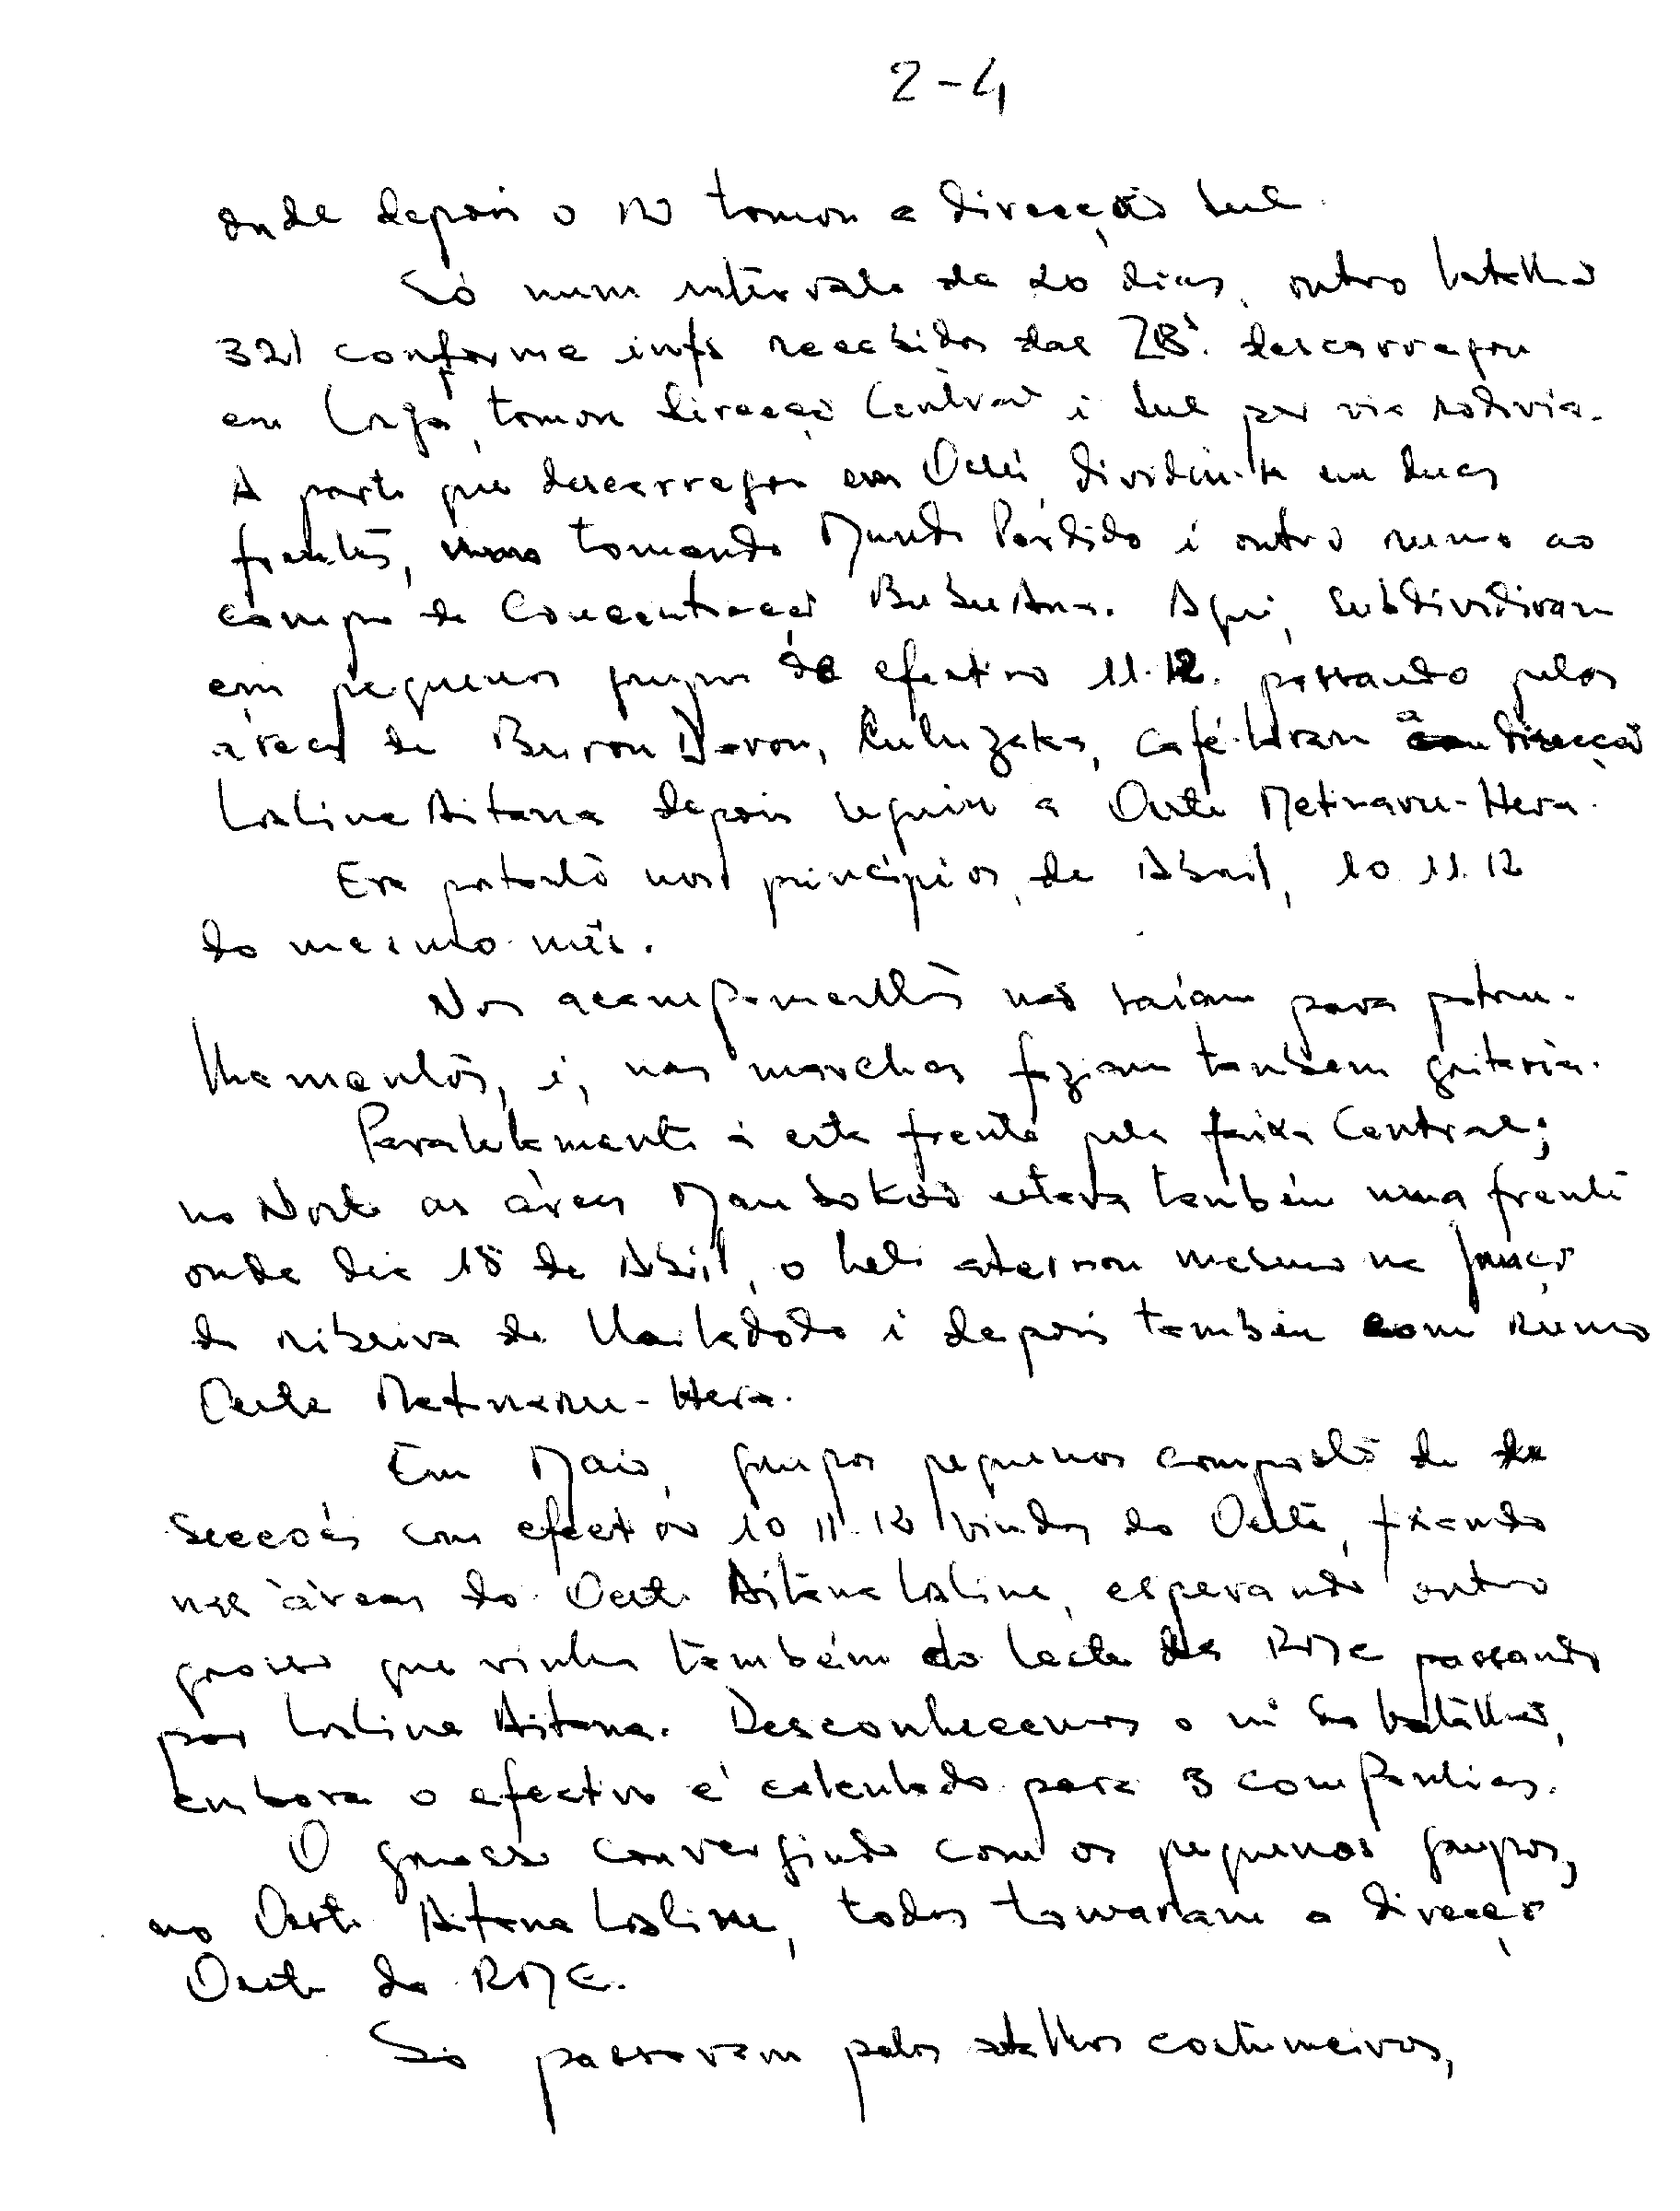 2-4
onde depois o IN tomou a direcção Sul.
Só num intervalo de 20 dias, outro batalhão
321 conforme infs recebidos das ZBs. descarregou
em Laga, tomou direcção Central e Sul por via rodovia.
A parte que descarregou em Ossú, dividiu-se em duas
frentes, uma tomando Mundo Perdido e outro rumo ao
campo de Concentração BubuAna. Aqui, subdividiram
em pequenos grupos de efectivo 11.12. passando pelas
áreas de Buron Daron, café-laran a direcção
LaslineAitana depois seguiu a Oeste Metinaru-Hera.
Era portanto nos princípios, de Abril, 10 11.12
do mesmo mês.
Nos acampamentos não saíam para patru-
lhamentos, e, nas marchas faziam também gritaria.
Paralelamente à esta frente pela faixa Central;
no Norte as áreas estava também uma frente
onde dia 18 de Abril, o heli aterrou mesmo na junção
da ribeira de e depois também com rumo
Oeste Metinaru-Hera.
Em Maio, grupos pequenos composto de de
Secções com efectivo 10 11.12 vindos do Oeste, fixando
nas áreas do Oeste AitanaLasline, esperando outro
grosso que vinha também do Leste da RMC passando
por Lasline Aitana. Desconhecemos o nº do batalhão,
embora o efectivo é calculado para 3 companhias.
O grosso convergindo com os pequenos grupos,
no Oeste AitanaLasline, todos tomaram a direcção
Oeste da RMC.
Só passavam pelos atalhos costumeiros,